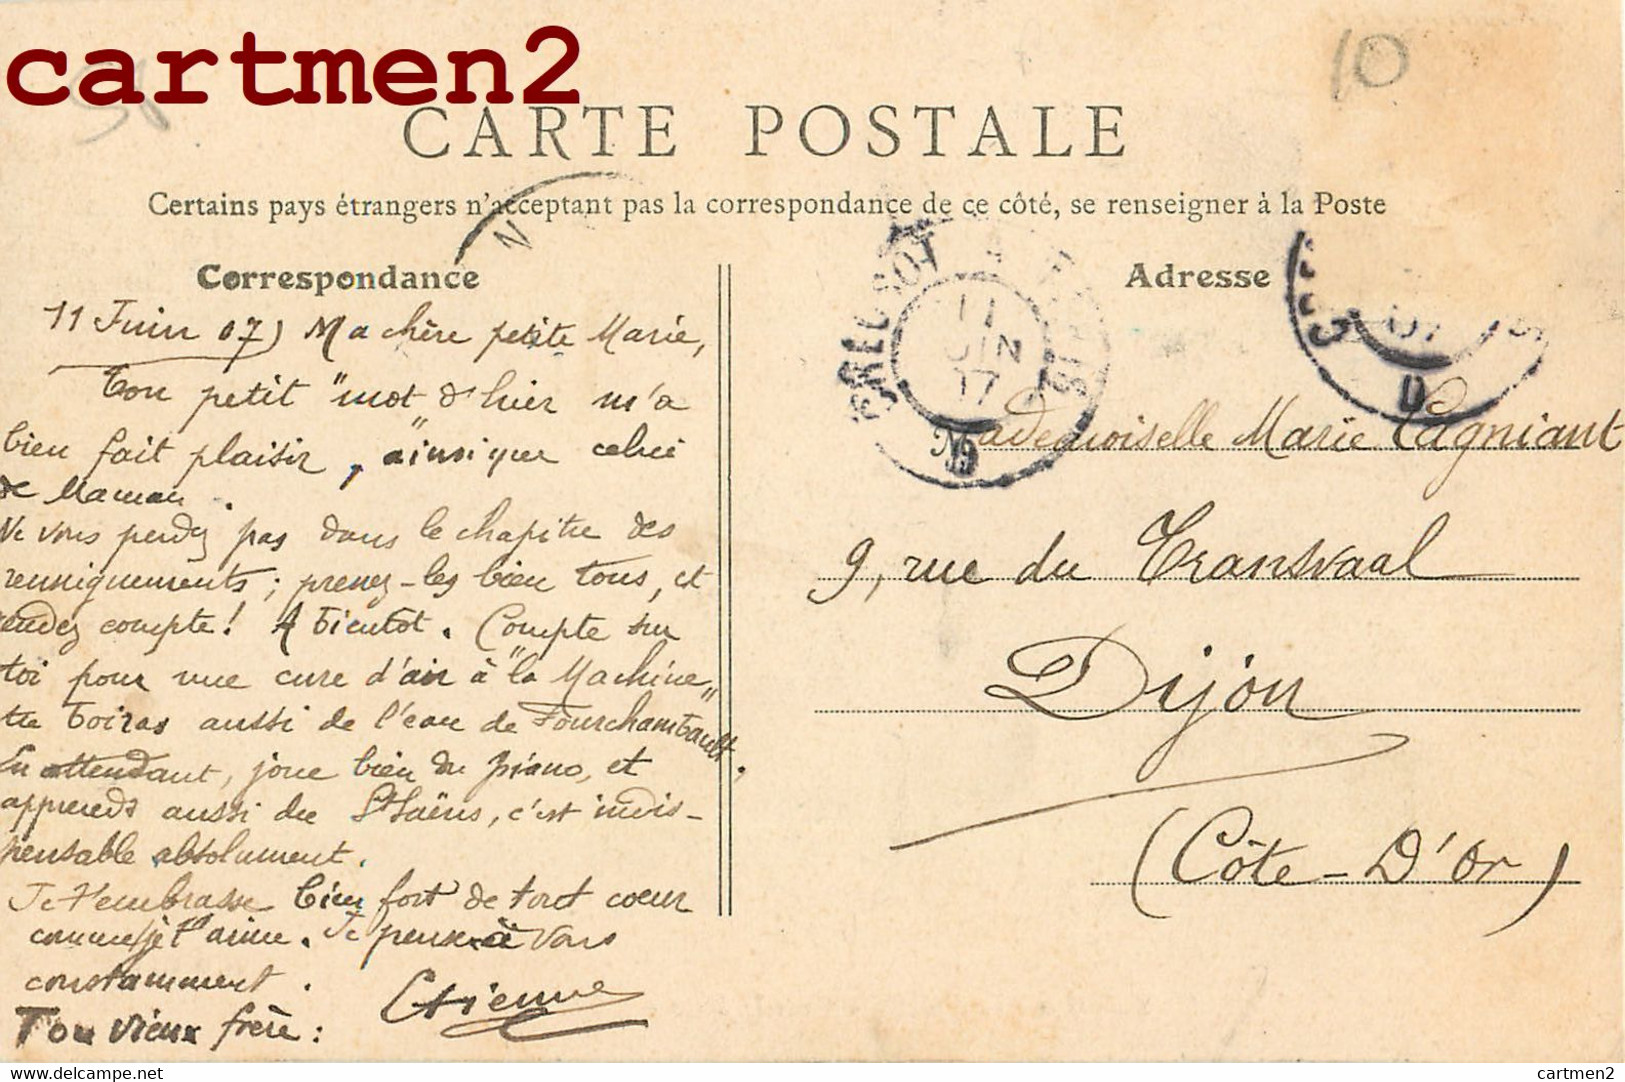 cartmen2
10
CARTE POSTALE
Certains pays étrangers n'acceptant pas la correspondance de ce côté, se renseigner à la Poste
Correspondance
11 Juin 07) Ma chère petite Marie,
Ton petit "mot d'hier m'a
bien fait plaisir, ainsi que celui
de Maman.
Ne vous perdez pas dans le chapitre des
renseignements; prenez-les bien tous, et
rendez compte! A bientôt. Compte sur
toi pour une cure d'air à "la Machine"
tu boiras aussi de l'eau de Fourchambault.
En attendant, joue bien du piano, et
apprends aussi du St Saëns, c'est indis-
pensable absolument.
Je t'embrasse bien fort de tout coeur
comme je t'aime. Je pense à vous
constamment.
Ton vieux frère: Etienne
Adresse
11
JUIN
Mademoiselle Marie Cagniant
9, rue du Transvaal
Dijon
(Côte-D'Or)
Delcampe.net
cartmen2